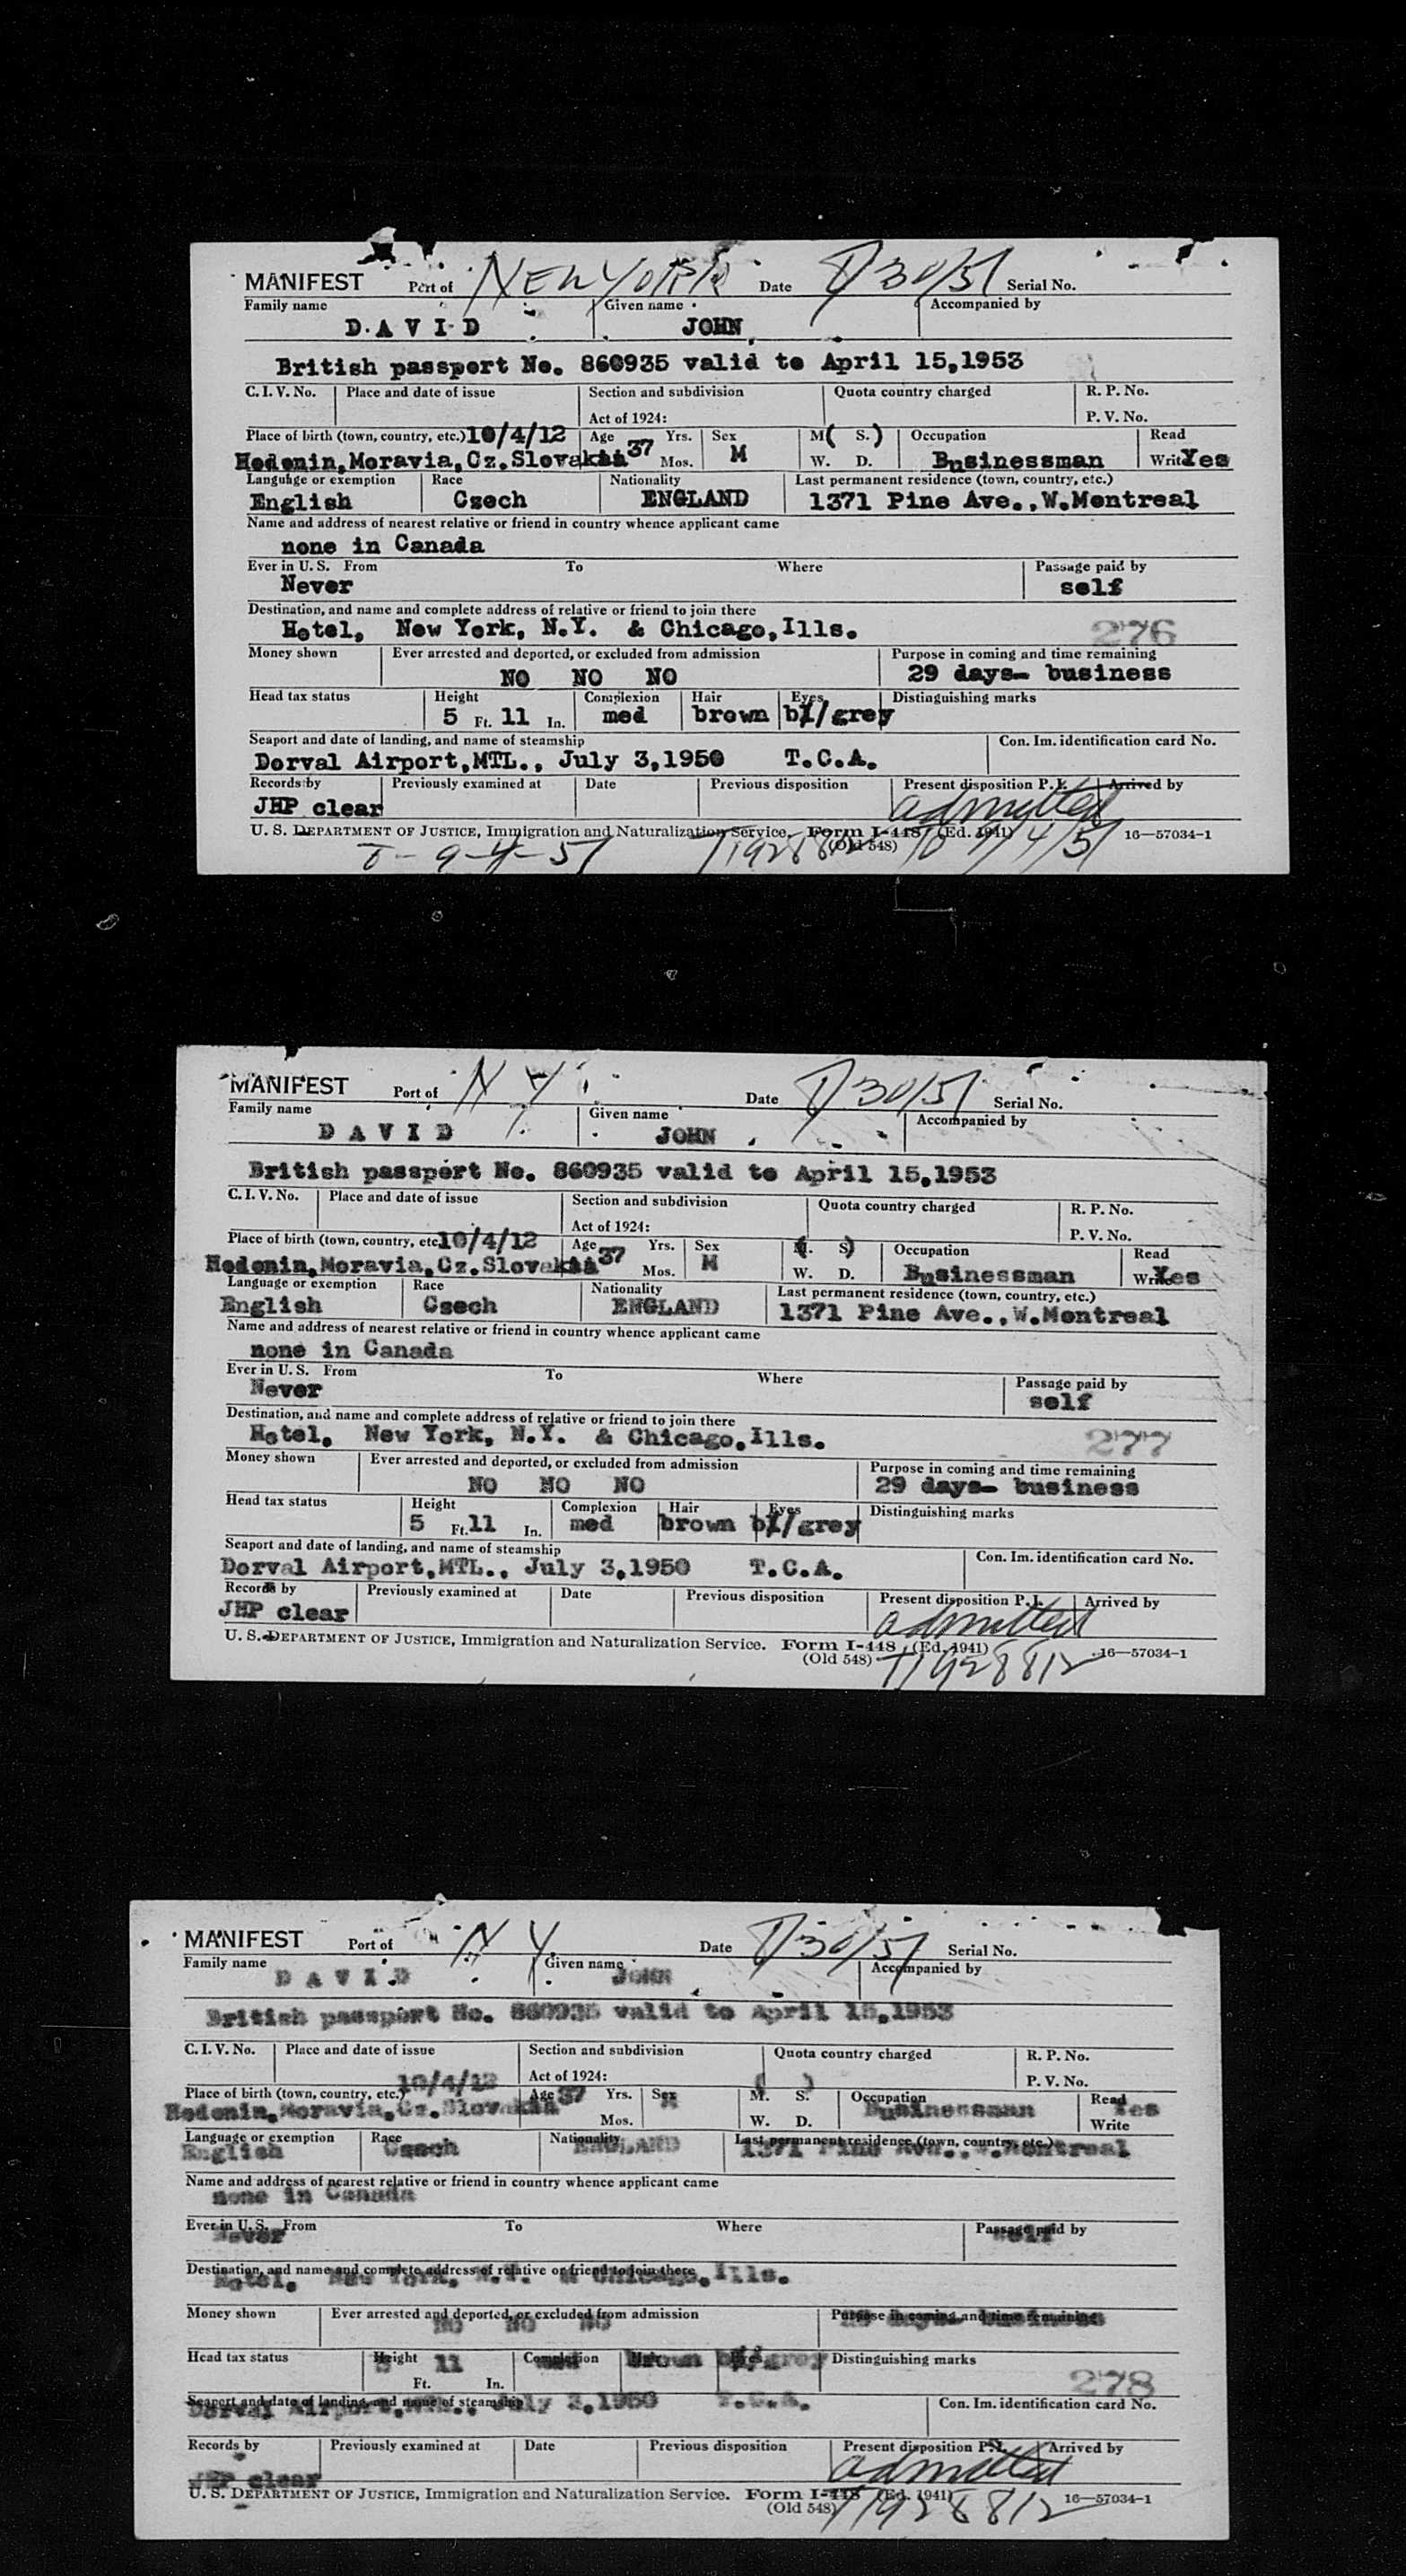 MANIFEST Port of NEW YORK Date 30/51 Serial No.
Family name Given name Accompanied by
D.A V I D JOHN
British passport No. 860935 valid to April 15,1953
C. I. V. No. Place and date of issue Section and subdivision Quota country charged R. P. No.
Act of 1924: P. V. No.
Place of birth (town, country, etc.) 10/4/12 Age 37 Yrs. Sex M ( S. ) Occupation Read
Hodonin,Moravia,Cz.Slovakia Mos. M W. D. Businessman Write Yes
Language or exemption Race Nationality Last permanent residence (town, country, etc.)
English Czech ENGLAND 1371 Pine Ave.,W.Montreal
Name and address of nearest relative or friend in country whence applicant came
none in Canada
Ever in U. S. From To Where Passage paid by
Never self
Destination, and name and complete address of relative or friend to join there
Hotel, New York, N.Y. & Chicago,Ills. 276
Money shown Ever arrested and deported, or excluded from admission Purpose in coming and time remaining
NO NO NO 29 days- business
Head tax status Height Complexion Hair Eyes Distinguishing marks
5 Ft. 11 In. med brown bl/grey
Seaport and date of landing, and name of steamship Con. Im. identification card No.
Dorval Airport,MTL., July 3,1950 T.C.A.
Records by Previously examined at Date Previous disposition Present disposition P. I. Arrived by
JHP clear admitted
U. S. DEPARTMENT OF JUSTICE, Immigration and Naturalization Service. Form I-448 (Ed. 1941) 16—57034-1
(Old 548)
9-4-51 T1928812 9/4/51
MANIFEST Port of N Y Date 30/51 Serial No.
Family name Given name Accompanied by
D A V I D JOHN
British passport No. 860935 valid to April 15,1953
C. I. V. No. Place and date of issue Section and subdivision Quota country charged R. P. No.
Act of 1924: P. V. No.
Place of birth (town, country, etc. 10/4/12 Age 37 Yrs. Sex (M. S) Occupation Read
Hodonin,Moravia,Cz.Slovakia Mos. M W. D. Businessman Write Yes
Language or exemption Race Nationality Last permanent residence (town, country, etc.)
English Czech ENGLAND 1371 Pine Ave.,W.Montreal
Name and address of nearest relative or friend in country whence applicant came
none in Canada
Ever in U. S. From To Where Passage paid by
Never self
Destination, and name and complete address of relative or friend to join there
Hotel, New York, N.Y. & Chicago,Ills. 277
Money shown Ever arrested and deported, or excluded from admission Purpose in coming and time remaining
NO NO NO 29 days- business
Head tax status Height Complexion Hair Eyes Distinguishing marks
5 Ft. 11 In. med brown bl/grey
Seaport and date of landing, and name of steamship Con. Im. identification card No.
Dorval Airport,MTL., July 3,1950 T.C.A.
Records by Previously examined at Date Previous disposition Present disposition P. I. Arrived by
JHP clear admitted
U. S. DEPARTMENT OF JUSTICE, Immigration and Naturalization Service. Form I-448 (Ed. 1941) 16—57034-1
(Old 548) T1928812
MANIFEST Port of N Y Date 30/51 Serial No.
Family name Given name Accompanied by
D A V I D JOHN
British passport No. 860935 valid to April 15,1953
C. I. V. No. Place and date of issue Section and subdivision Quota country charged R. P. No.
Act of 1924: P. V. No.
Place of birth (town, country, etc.) 10/4/12 Age 37 Yrs. Sex (M. S.) Occupation Read
Hodonin,Moravia,Cz.Slovakia Mos. M W. D. Businessman Yes Write
Language or exemption Race Nationality Last permanent residence (town, country, etc.)
English Czech ENGLAND 1371 Pine Ave.,W.Montreal
Name and address of nearest relative or friend in country whence applicant came
none in Canada
Ever in U. S. From To Where Passage paid by
Never self
Destination, and name and complete address of relative or friend to join there
Hotel, New York, N.Y. & Chicago,Ills.
Money shown Ever arrested and deported, or excluded from admission Purpose in coming and time remaining
NO NO NO 29 days- business
Head tax status Height Complexion Hair Eyes Distinguishing marks
5 Ft. 11 In. med brown bl/grey 278
Seaport and date of landing, and name of steamship Con. Im. identification card No.
Dorval Airport,MTL., July 3,1950 T.C.A.
Records by Previously examined at Date Previous disposition Present disposition P. I. Arrived by
JHP clear admitted
U. S. DEPARTMENT OF JUSTICE, Immigration and Naturalization Service. Form I-448 (Ed. 1941) 16—57034-1
(Old 548) T1928812